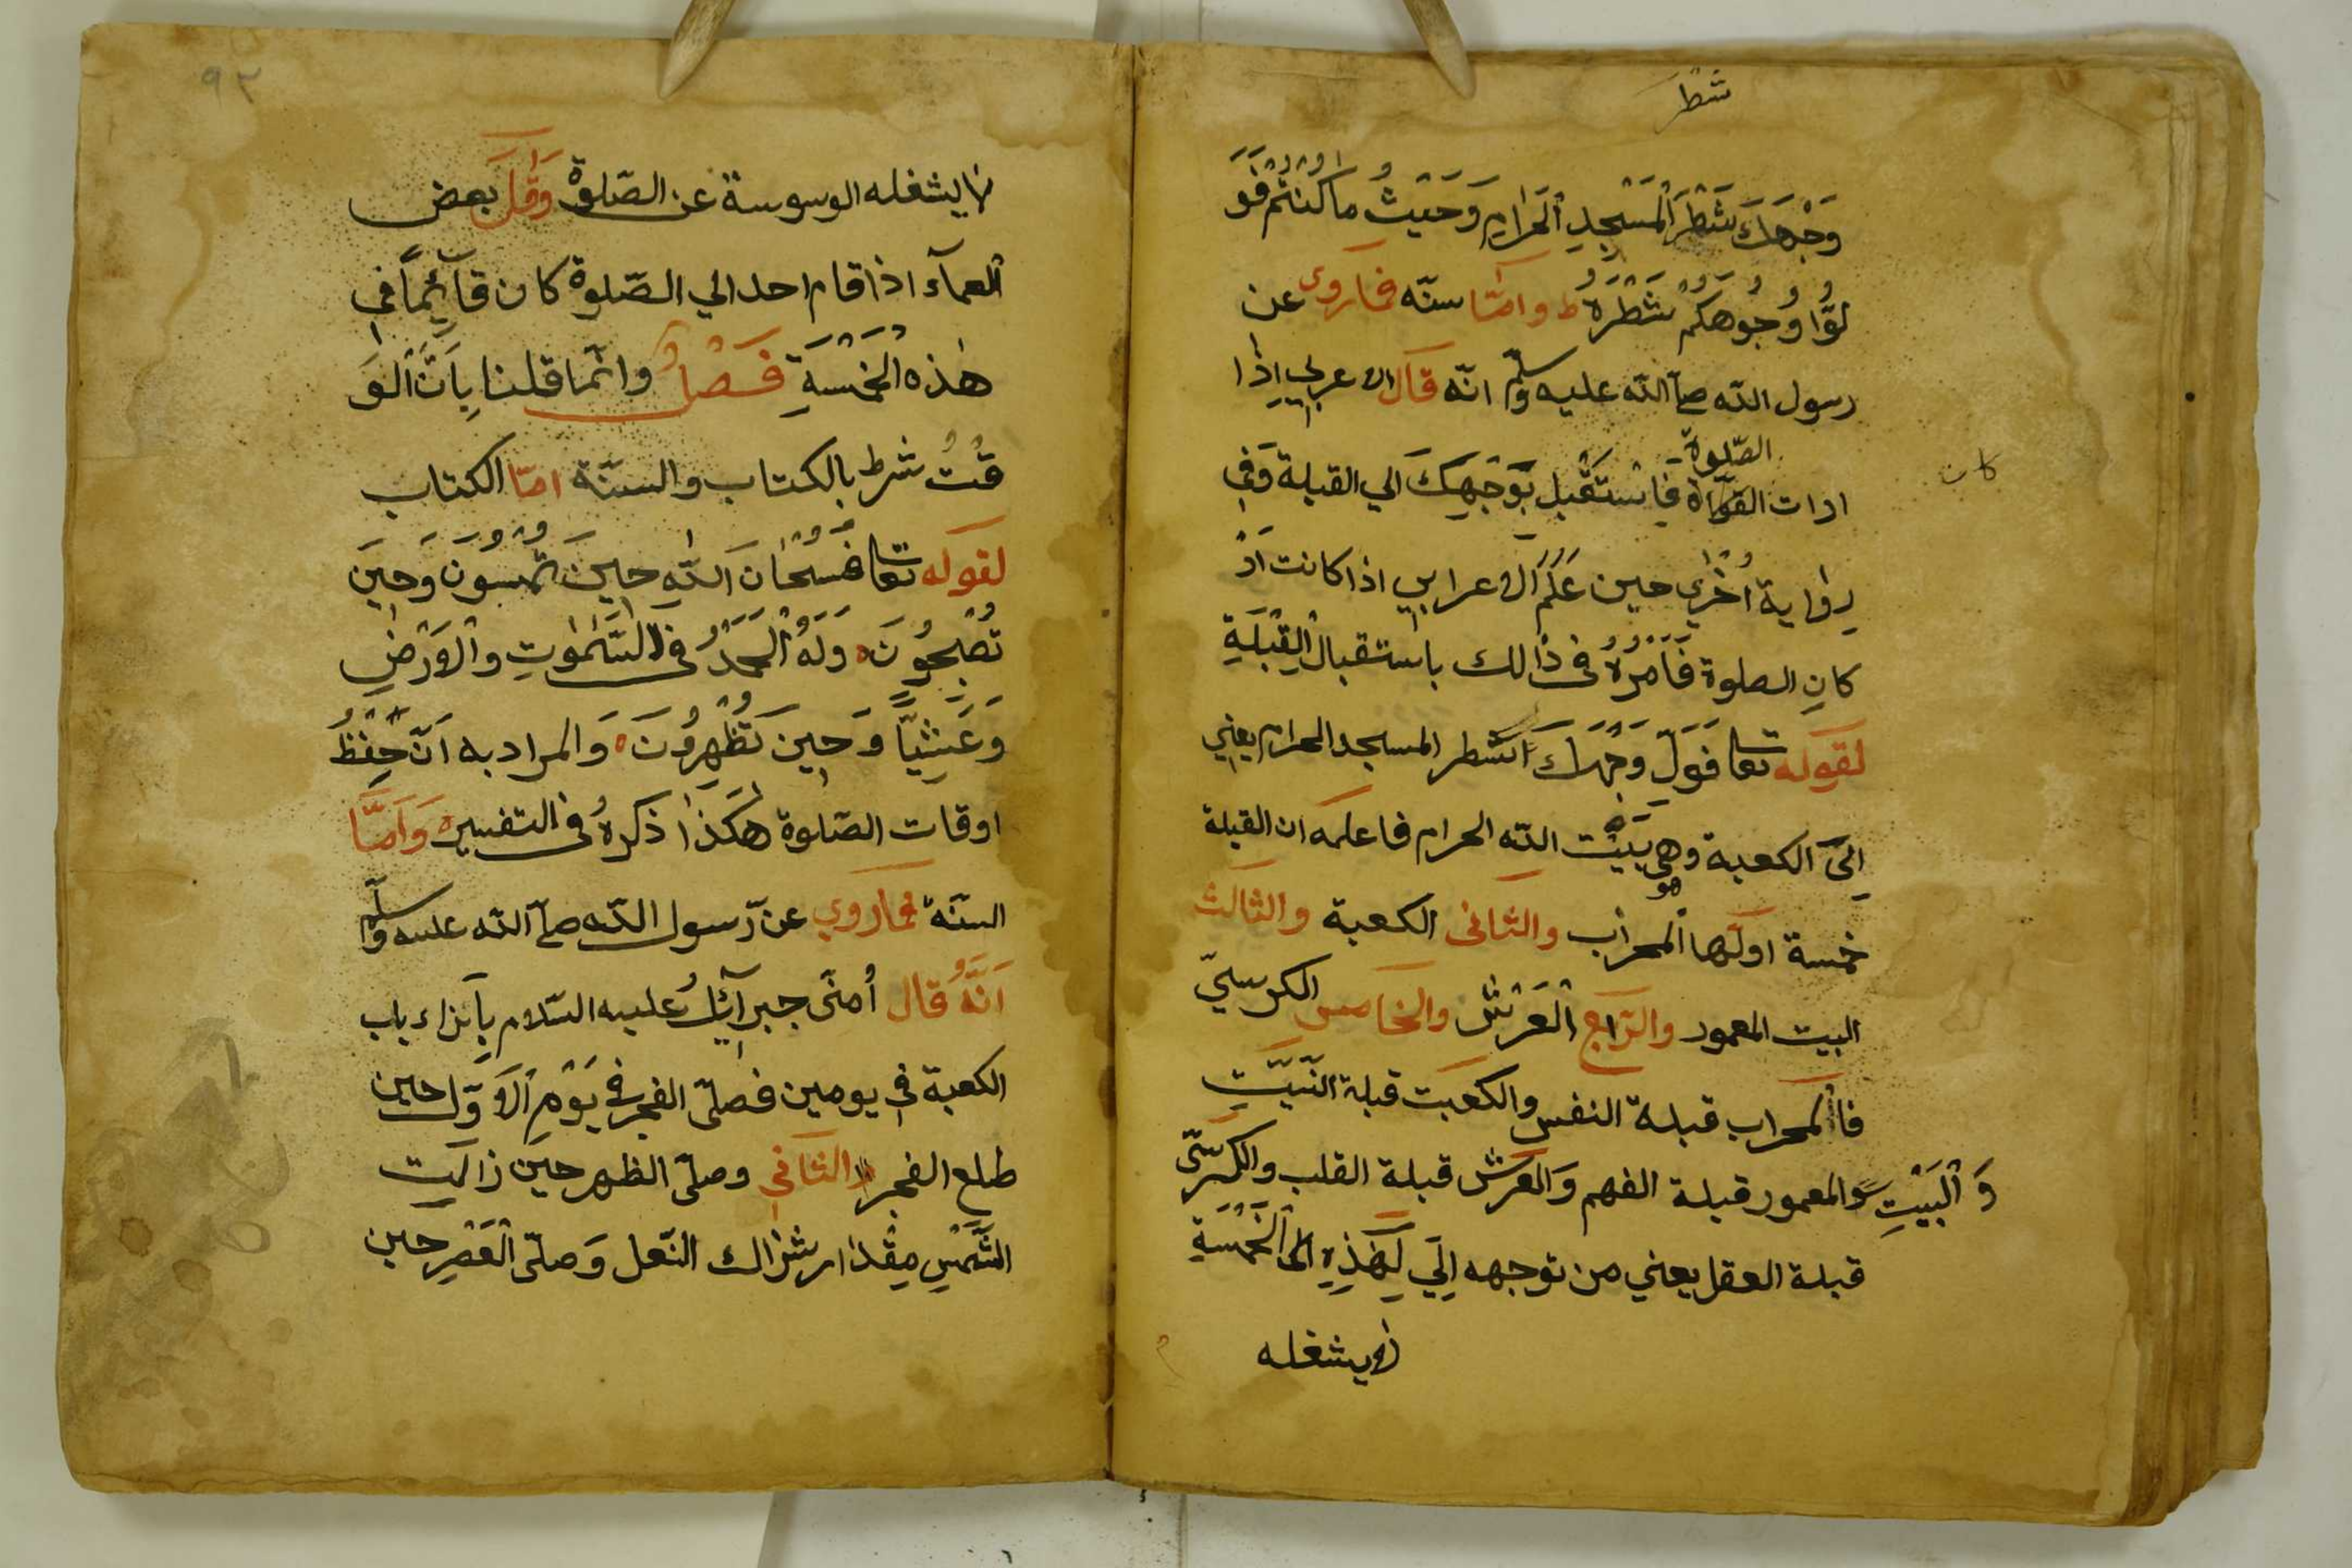 شطر
وَجْهَكَ شَطْرَ الْمَسْجِدِ الْحَرَامِ وَحَيْثُ ما كُنْتُمْ فَوَ
لُّوا وُجُوهَكُمْ شَطْرَهُ ط وامّا سنّه فماروى عن
رسول الله صلّ الله عليه وسلّم انّه قَالَ الاعربي اِذا
الصّلوة
ادات القراة فَاسْتَقْبِل بِوَجْهِكَ الي القبلة وَفي
كان
رِوٰاية اُخْرٰي حين عَلَّمَ الاعرابي اذا كانت اَدْ
كانِ الصلوة فَأَمَرَهُ فى ذٰالك باستقبال الْقِبْلَةِ
لقوله تعا فَوَلِّ وَجْهَكَ شطر المسجد الحرام يعني
اِلَي الكعبة وهي بَيْت الله الحرام فاعلمه ان القبلة
هو
خمسة اولها المحراب والثانى الكعبة والثالث
البيت المعمور والرّابع الْعَرْش والخامس الكرسيّ
فاالمحراب قبلة النفس والكعبت قبلة النّيَّتِ
وَ الْبَيْتِ والمعمور قبلة الفهم وَالعرش قبلة القلب والكرسّى
قبلة العقل يعني من توجهه اِلَي لِهٰذِهِ الْخَمْسَةِ
لايشغله
٩٢
لايشغله الوسوسة عن الصّلوة وَقَالَ بعض
العمآء اذا قام احد الي الصّلوة كان قآئِماً في
هٰذه الْخَمْسَةِ فَصْلٌ وانّما قلنا بِاَنَّ الْوَ
قْتُ شرط بالكتاب والسنّة امّا الكتاب
لقوله تعا فسُبْحَانَ اللّٰهِ حِينَ تُمْسُونَ وَحِينَ
تُصْبِحُونَ ه وَلَهُ الْحَمْدُ فى السَّمٰوٰتِ والْاَرْضِ
وَعَشِيّاً وَحِينَ تُظْهِرُونَ ه وَالمراد به اَنّ حِفْظُ
اوقات الصّلوة هٰكَذٰا ذكرهُ فى التفسير ه وَاَمّا
السنّة فماروي عن رّسول الله صلّ الله عليه وسلّم
اَنَّهُ قال اُمنّى جبرآئلُ عليه السّلام بِآنزاء باب
الكعبة في يومين فصلّى الفجر في يَوْمِ الْاَوّل حين
طلع الفجر الثاني وصلّى الظهر حين زالت
الشَّمْسِ مِقْدار شراك النّعل وَصلّى الْعَصْرِ حين